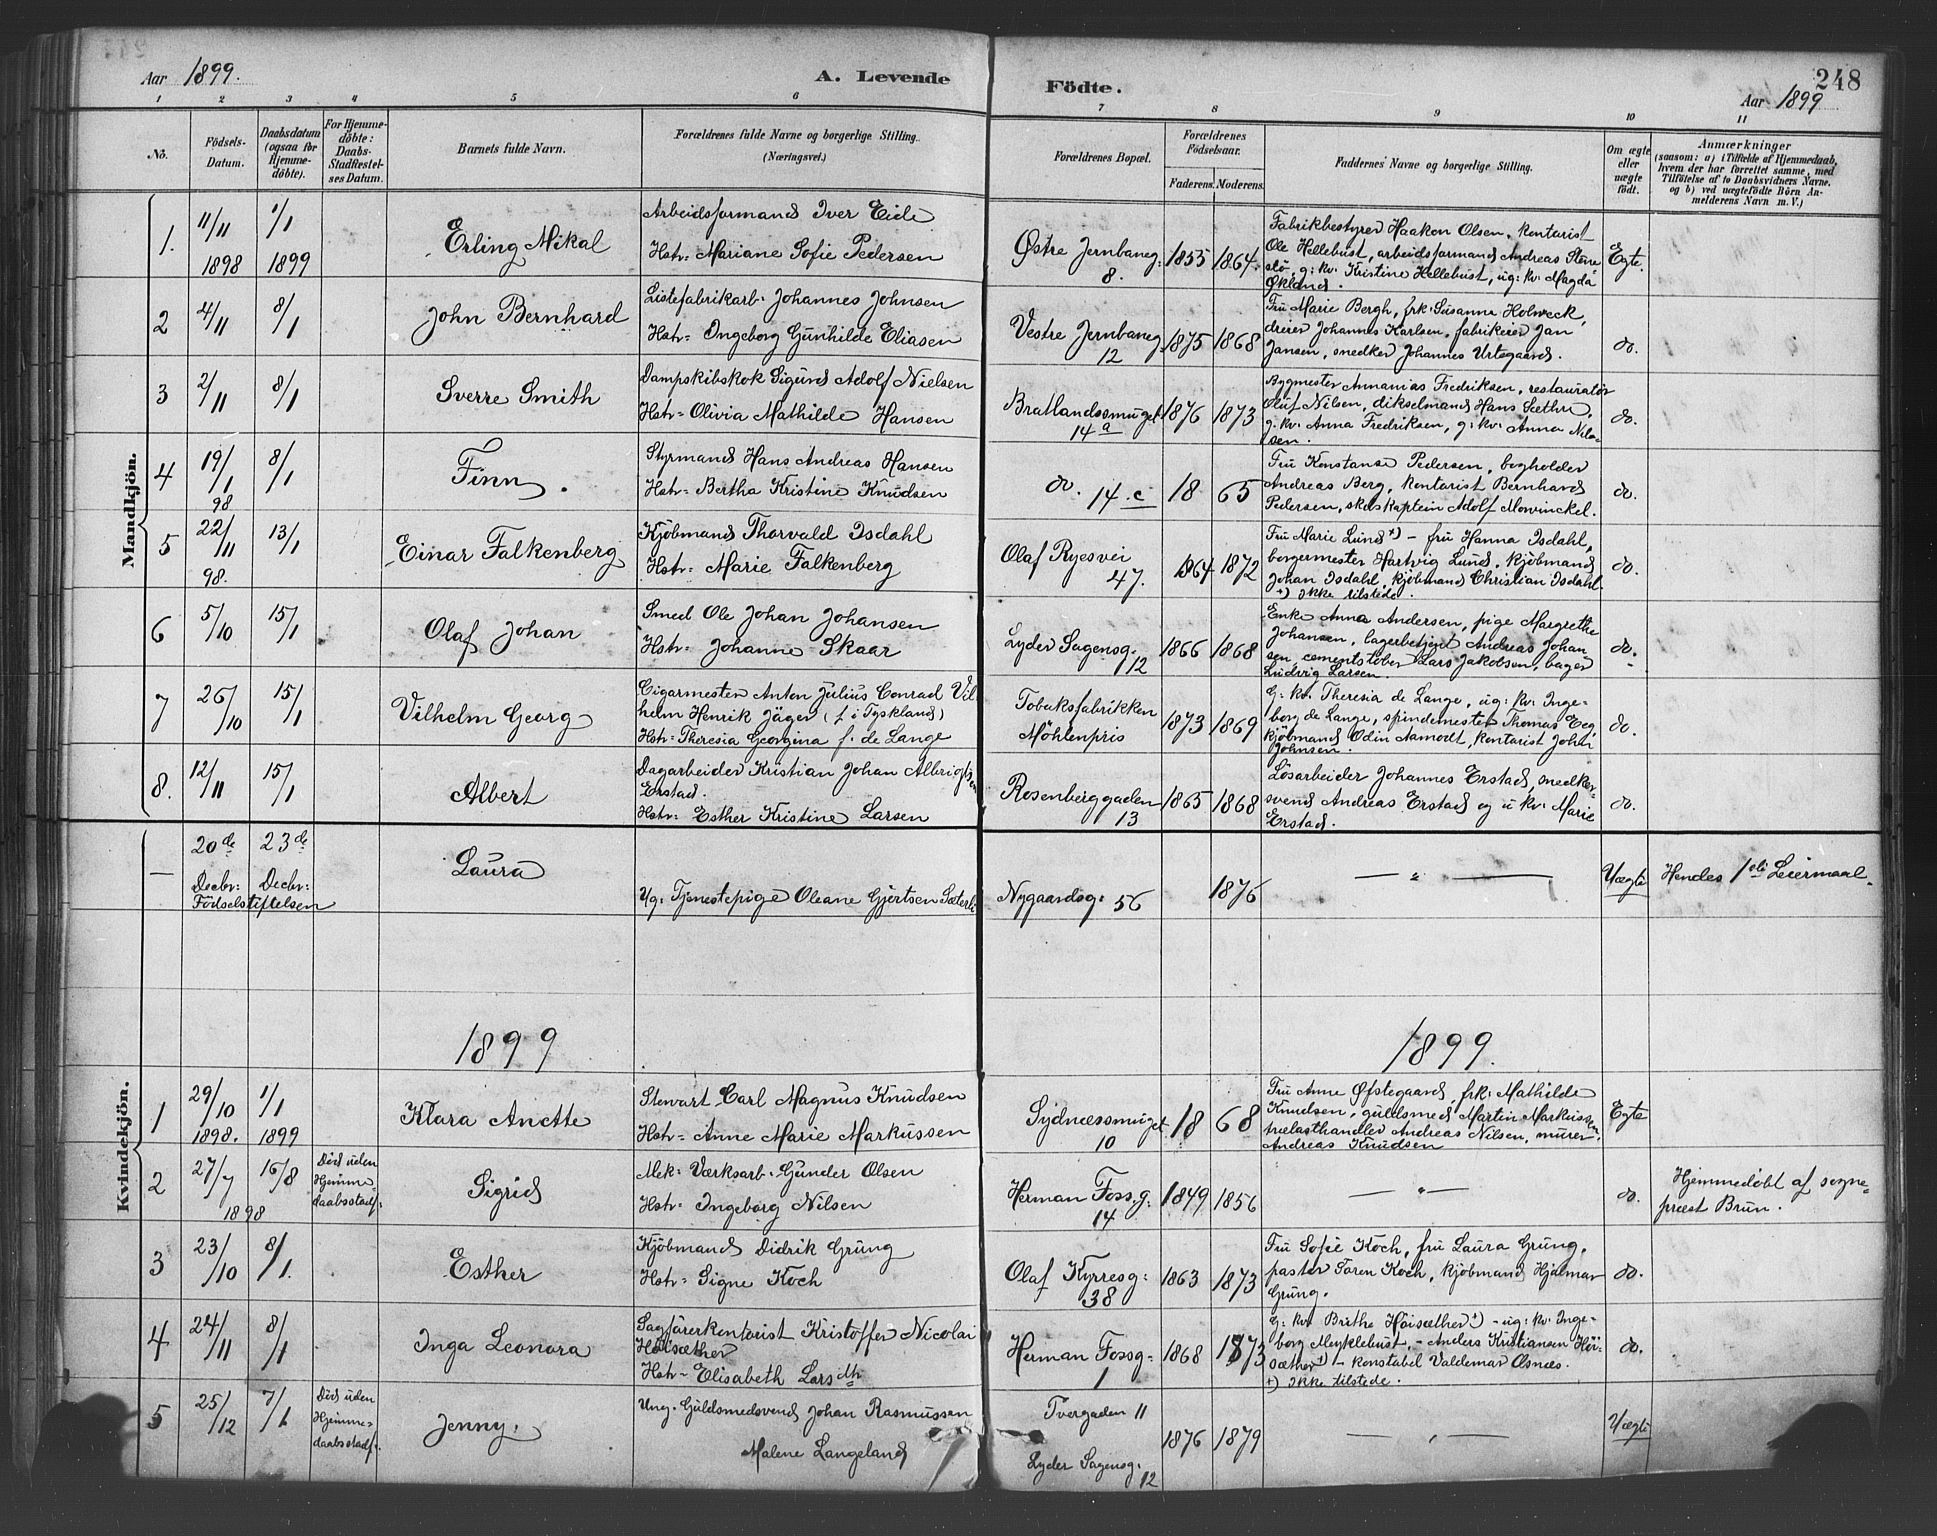 Aar 1899.
A. Levende
Födte.
248
Aar 1899
1 2 3 4 5 6 7 8 9 10 11
No.
Födsels-
Datum.
Daabsdatum
(ogsaa for
Hjemme-
döbte).
For Hjemme-
döbte:
Daabs-
Stadfæstel-
ses Datum.
Barnets fulde Navn.
Forældrenes fulde Navne og borgerlige Stilling.
(Næringsvei.)
Forældrenes Bopæl.
Forældrenes
Födselsaar.
Faderens.
Moderens.
Faddernes Navne og borgerlige Stilling.
Om ægte
eller
uægte
födt.
Anmærkninger
(saasom: a) i Tilfælde af Hjemmedaab,
hvem der har forrettet samme, med
Tilföielse af to Daabsvidners Navne,
og b) ved uægtefödte Börn An-
melderens Navn m. V.)
Mandkjön.
1.
11/11
1898
1/1
1899
Erling Mikal
Arbeidsformand Iver Eide
Hstr: Mariane Sofie Pedersen
Østre Jernbaneg:
8.
1855
1864.
Fabrikbestyrer Haakon Olsen, kontorist
Ole Hellebust, arbeidsformand Andreas Stene
stø, g: kv: Kristine Hellebust, ug: kv: Magda
Økland.
Egte.
2
4/11
8/1
John Bernhard
Listefabrikarb: Johannes Johnsen
Hstr: Ingeborg Gunhilde Eliasen
Vestre Jernbaneg:
12
1875
1868
Fru Marie Bergh, frk: Susanna Holweck,
dreier Johannes Karlsen, fabrikeier Jan
Jansen, snedker Johannes Urtegaard.
do.
3
2/11
8/1
Sverre Smith
Dampskibskok Sigurd Adolf Nielsen
Hstr: Olivia Mathilde Hansen
Bratlandssmuget
14 a
1876
1873
Bygmester Annanias Fredriksen, restauratør
Oluf Nilsen, dikselmand Hans Sæthre,
g: kv: Anna Fredriksen, g: kv: Anna Nil-
sen.
do.
4
19/1
98
8/1
Finn.
Styrmand Hans Andreas Hansen
Hstr: Bertha Kristine Knudsen
do. 14 c
18 65
Fru Konstanse Pedersen, bogholder
Andreas Berg, kontorist Bernhard
Pedersen, skibskaptein Adolf Mowinckel.
do.
5
22/11
98.
13/1
Einar Falkenberg
Kjöbmand Thorvald Isdahl
Hstr: Marie Falkenberg
Olaf Ryesvei
47.
1864
1872
Fru Marie Lund +) – fru Hanna Isdahl,
borgermester Hartvig Lund, kjöbmand
Johan Isdahl, kjöbmand Christian Isdahl.
+) ikke tilstede.
do.
6
5/10
15/1
Olaf Johan
Smed Ole Johan Johansen
Hstr: Johanne Skaar
Lyder Sagensg.
12
1866
1868
Enke Anna Andersen, pige Margrethe
Johansen, lagerbetjent Andreas Johan
sen, cementstøber Lars Jakobsen, bager
Ludvig Larsen.
do.
7
26/10
15/1
Vilhelm Georg
Cigarmester Anton Julius Conrad Vil
helm Henrik Jäger (f. i Tyskland)
Hstr: Theresia Georgina f. de Lange
Tobaksfabrikken
Möhlenpris
1873
1869
G: kv: Theresia de Lange, ug: kv: Inge-
borg de Lange, spindemester Thomas Eeg,
kjöbmand Odin Aamodt, kontorist Johan
Johnsen.
do.
8.
12/11
15/1
Albert
Dagarbeider Kristian Johan Albrigtsen
Erstad.
Hstr: Esther Kristine Larsen
Rosenberggaden
13
1865
1868
Løsarbeider Johannes Erstad, snedker-
svend Andreas Erstad og u: kv: Marie
Erstad.
do.
—
20de
Decbr:
23de
Decbr:
Födselstiftelsen
Laura
Ug: Tjenestepige Oleane Gjertsen
Nygaardsg: 56
1876
— " —
Uægte
Hendes 1ste Leiermaal.
1899
1899.
Kvindekjön.
1
29/10
1898.
1/1
1899
Klara Anette
Stewart Carl Magnus Knudsen
Hstr: Anne Marie Markussen
Sydnæssmuget
10
18 68
Fru Anne Øfstegaard, frk: Mathilde
Knudsen, guldsmed Martin Markussen,
trælasthandler Andreas Nilsen, murer
Andreas Knudsen
Egte
2
27/7
16/8
1898
Död uden
Hjemme-
daabsstadf:
Sigrid
Mek: Værksarb: Gunder Olsen
Hstr: Ingeborg Nilsen
Herman Fossg:
14
1849
1856
— " —
do.
Hjemmedöbt af sogne-
præst Brun.
3
23/10
8/1.
Esther
Kjöbmand Didrik Grung
Hstr: Signe Koch
Olaf Kyrresg:
38
1863
1873
Fru Sofie Koch, fru Laura Grung,
pastor Søren Koch, kjöbmand Hjalmar
Grung.
do.
4
24/11
8/1
Inga Leonora
Sagförerkontorist Kristoffer Nicolai
Höisæther
Hstr: Elisabeth Larsdtr
Herman Fossg:
1
1868
1873
G: kv: Brithe Höisæther +) – ug: kv: Inge-
borg Myklebust, – Anders Kristiansen Höi-
sæther +) – konstabel Valdemar Osnæs.
+) ikke tilstede.
do.
5
25/12
7/1
Död uden
Hjemme-
daabsstadf:
Jenny.
Ung. Guldsmedsvend Johan Rasmussen
Malene Langeland
Tvergaden 11
Lyder Sagensg:
12
1876
1879
— " —
Uægte